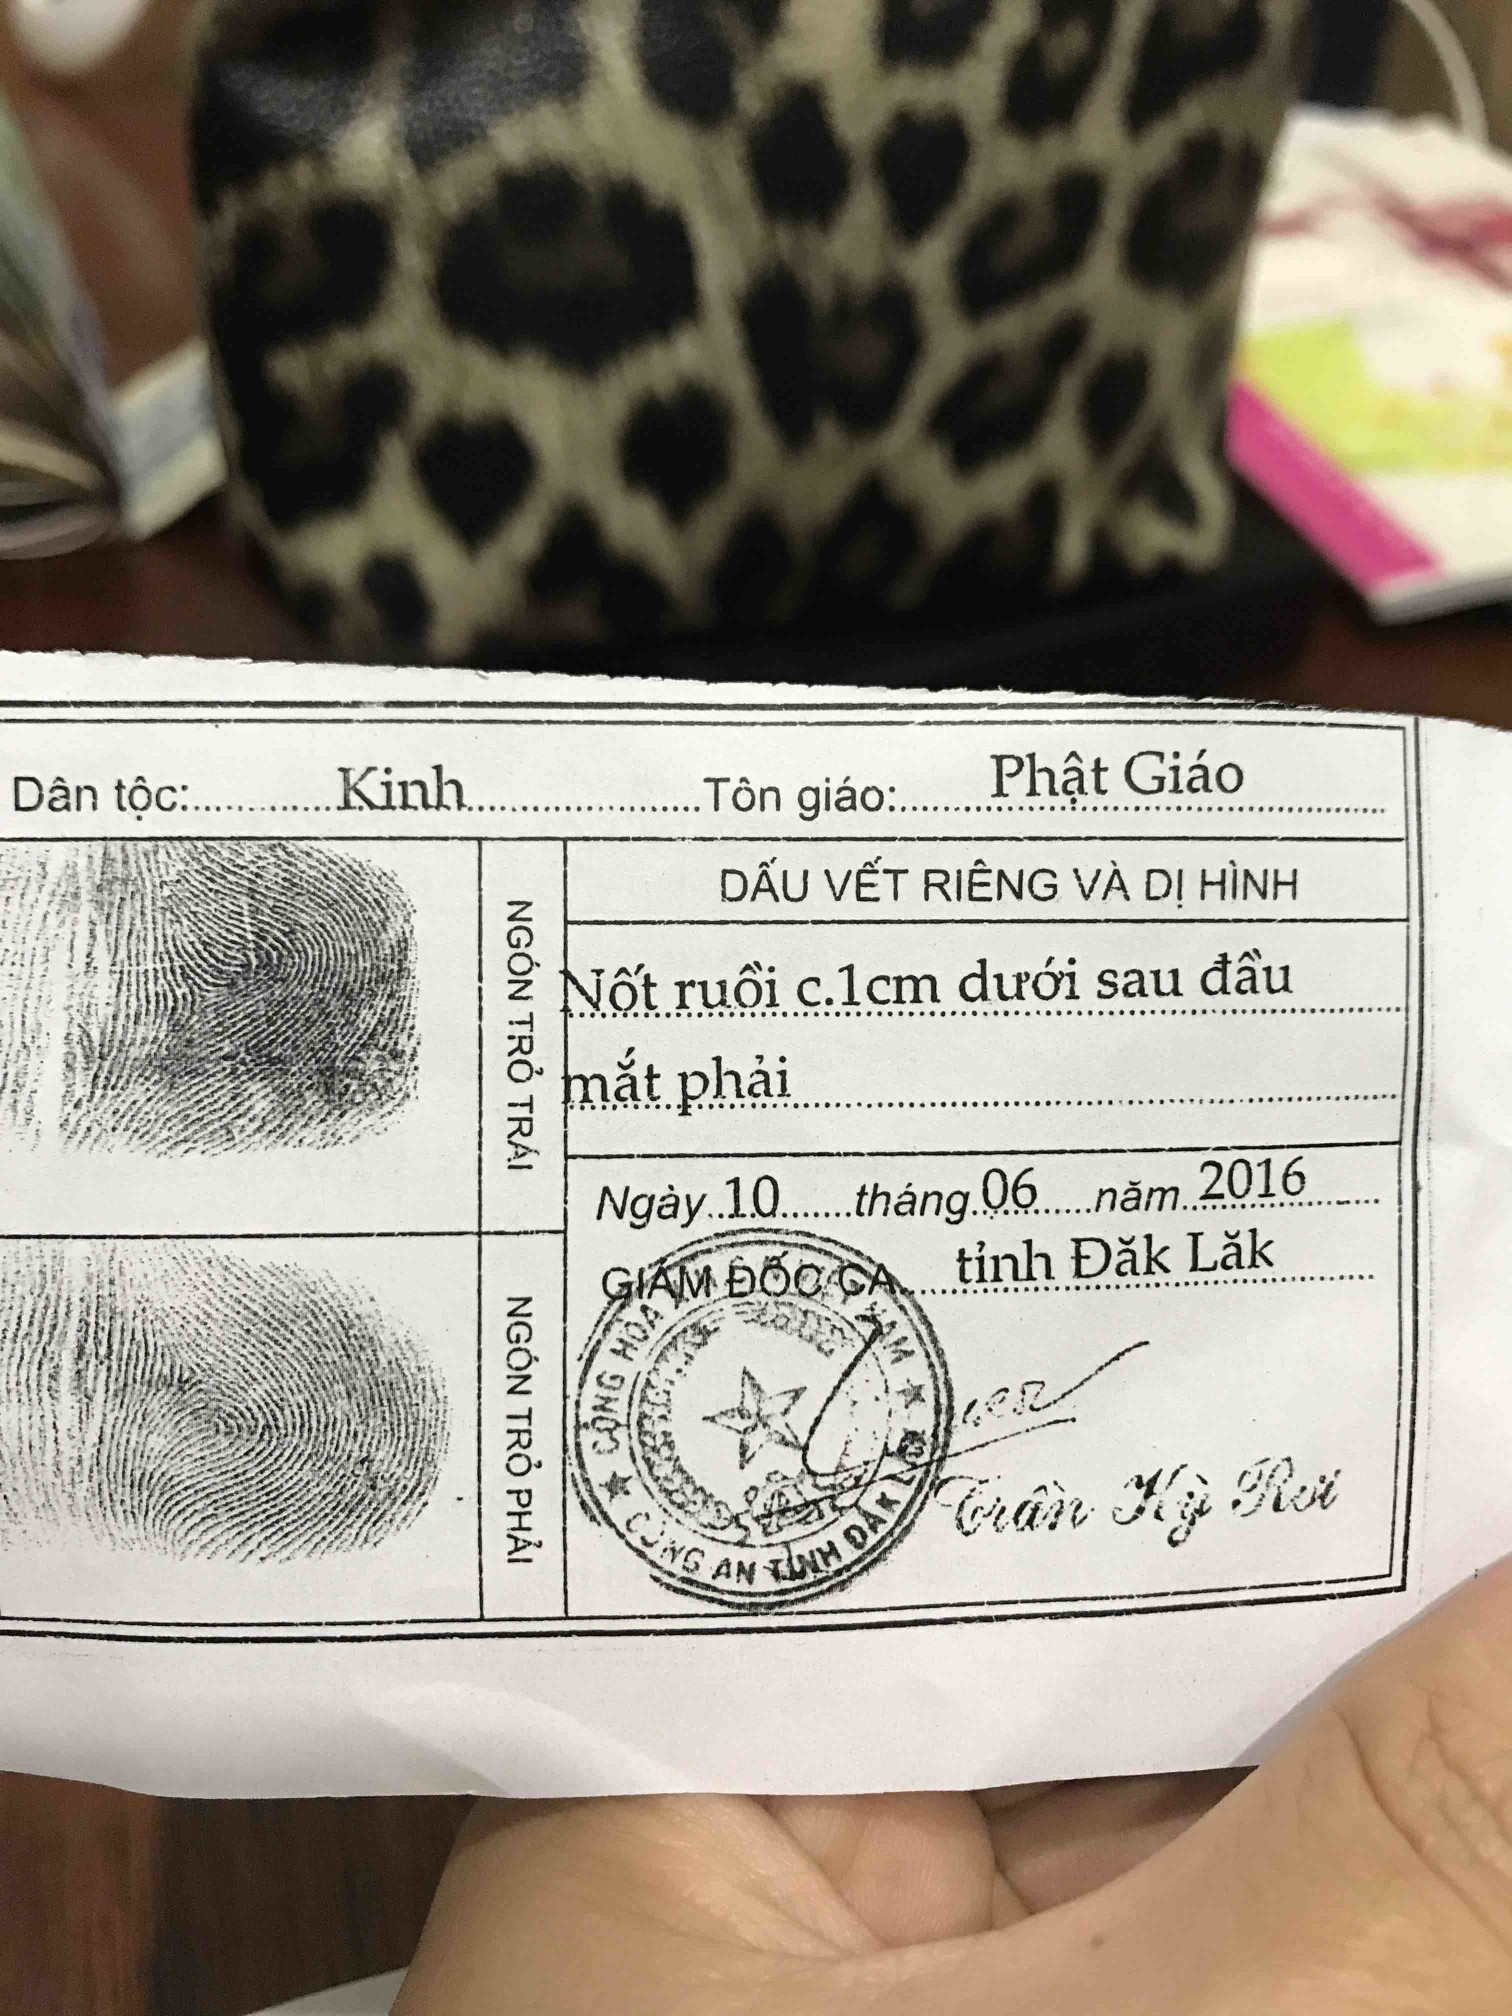 Dân tộc: Kinh Tôn giáo: Phật Giáo
NGÓN TRỎ TRÁI
DẤU VẾT RIÊNG VÀ DỊ HÌNH
Nốt ruồi c.1cm dưới sau đầu
mắt phải
Ngày 10 tháng 06 năm 2016
GIÁM ĐỐC CA tỉnh Đăk Lăk
NGÓN TRỎ PHẢI
CỘNG HÒA NAM
CÔNG AN TỈNH ĐẮK LẮK
Trần Kỳ Rơi